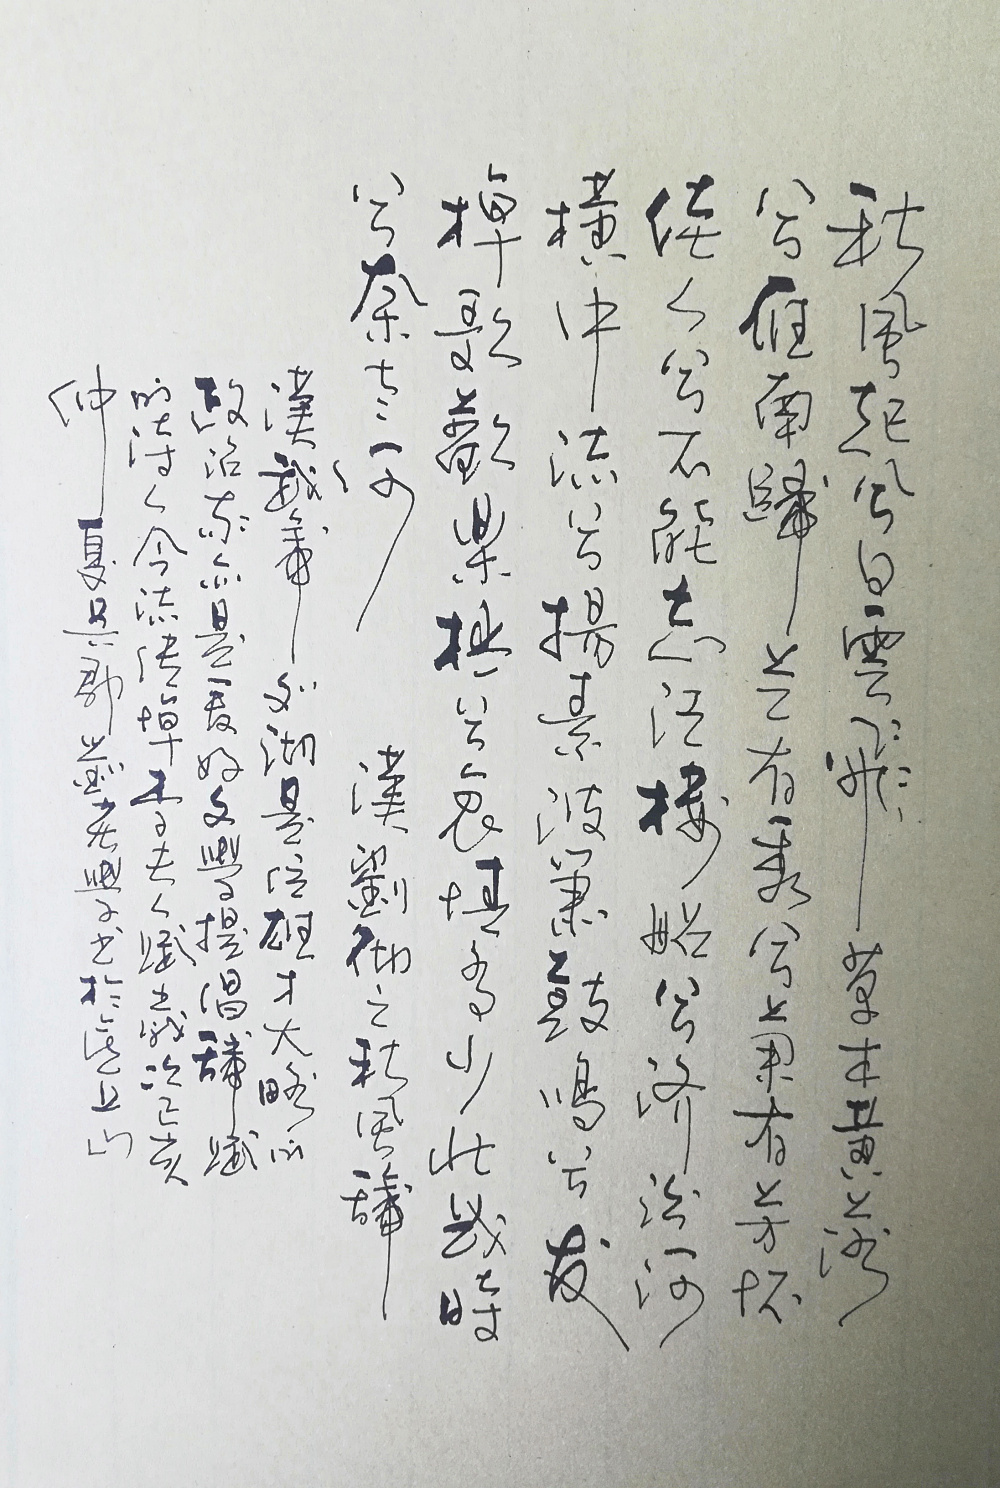 秋風起兮白雲飛草木黃落
兮雁南歸蘭有秀兮菊有芳懷
佳人兮不能忘泛樓船兮濟汾河
橫中流兮揚素波簫鼓鳴兮發
棹歌歡樂極兮哀情多少壯幾時
兮奈老何
漢劉徹之秋風辭
漢武帝劉徹是位雄才大略的
政治家亦是愛好文學提倡辭賦
的詩人今流傳悼李夫人賦歲次己亥
仲夏吳郡蘇老學書於